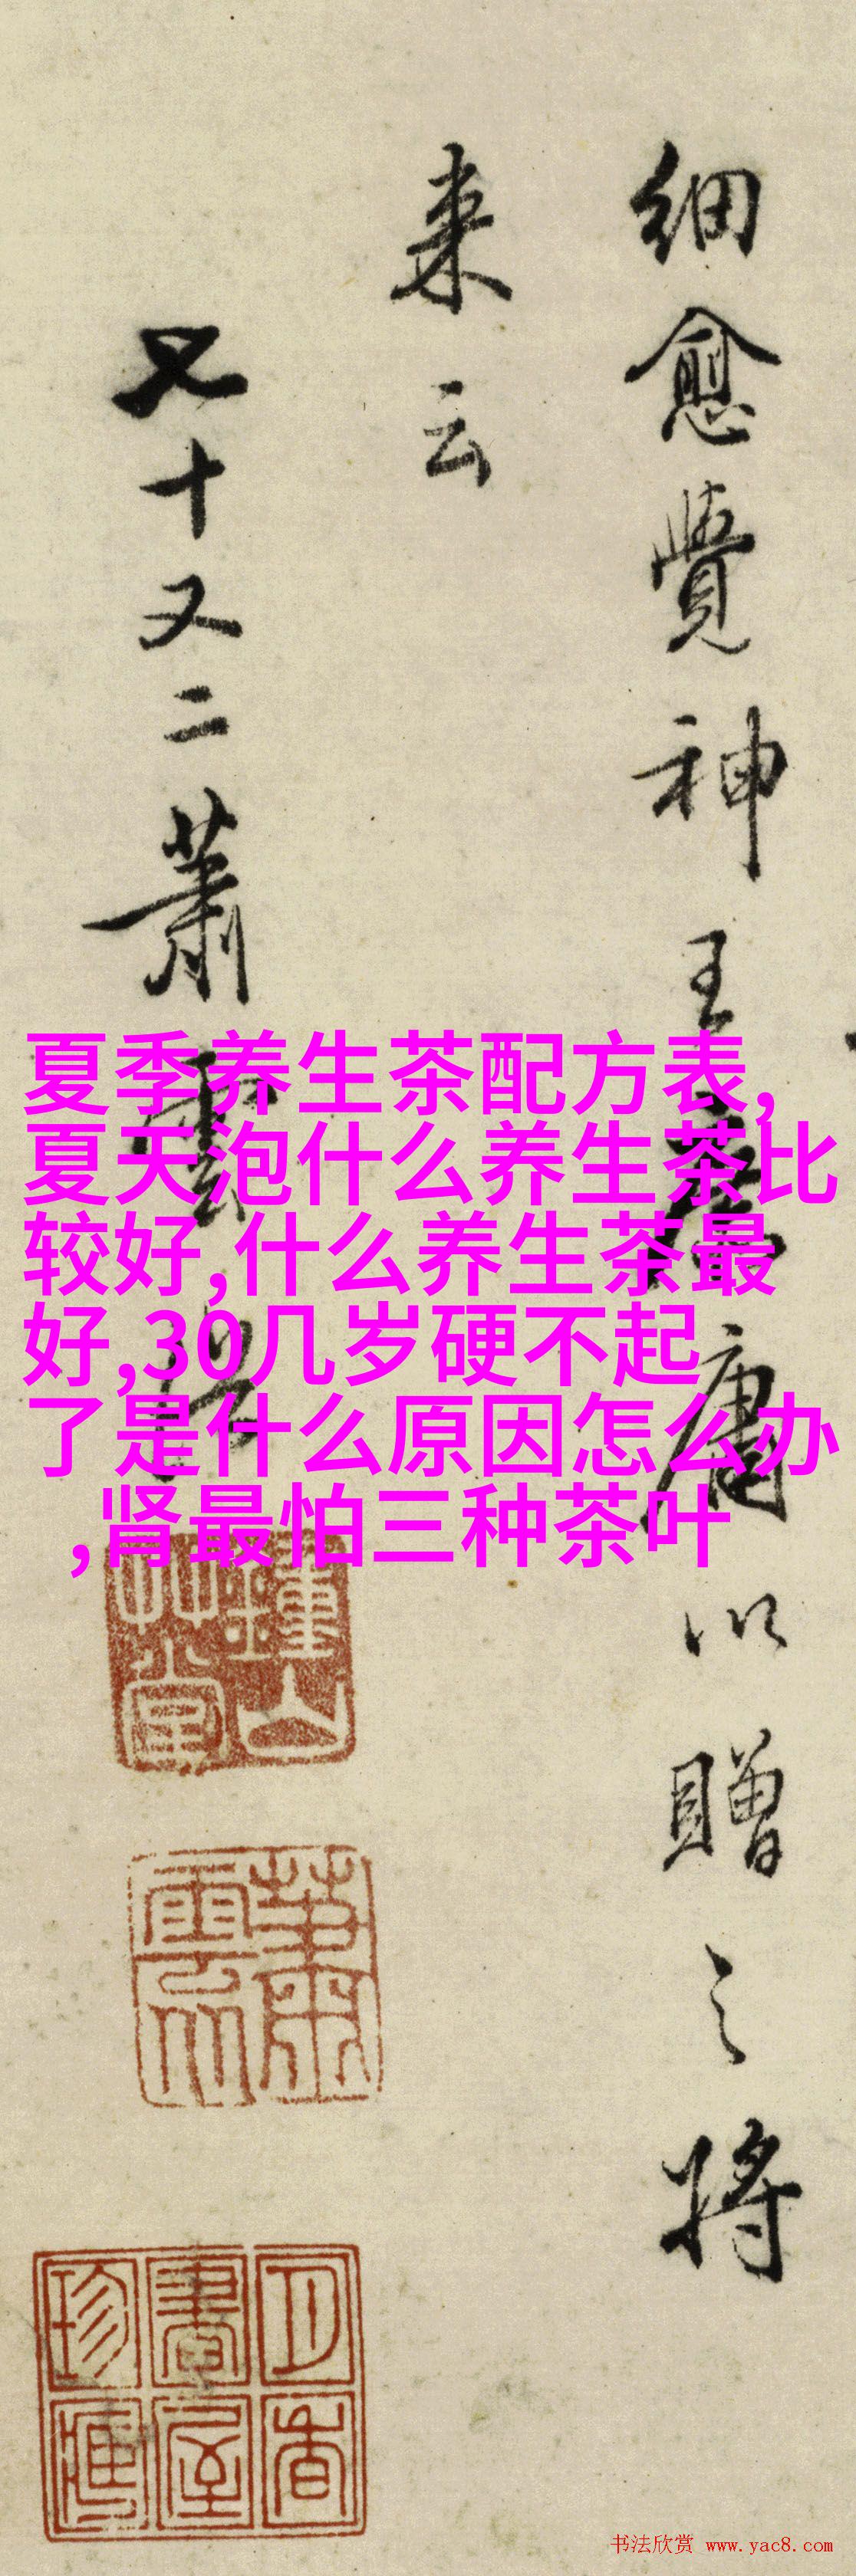 细愈觉神王□庸以贈之将
来云
七十又二萧雲从
夏季养生茶配方表,
夏天泡什么养生茶比
较好,什么养生茶最
好,30几岁硬不起
了是什么原因怎么办
,肾最怕三种茶叶
鍾山
艸堂
萧
雲从
书法欣赏 www.yac8.com